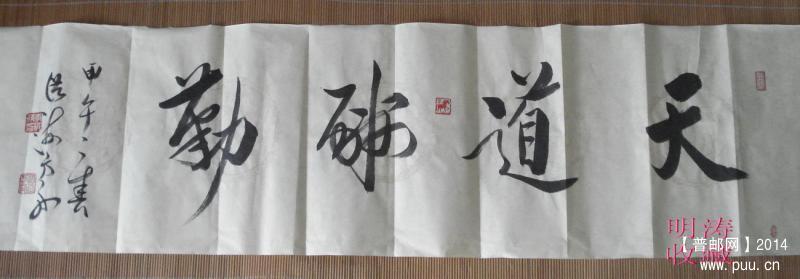 天道酬勤
甲午之春
明涛
收藏
【普邮网】2014
www.puu.cn